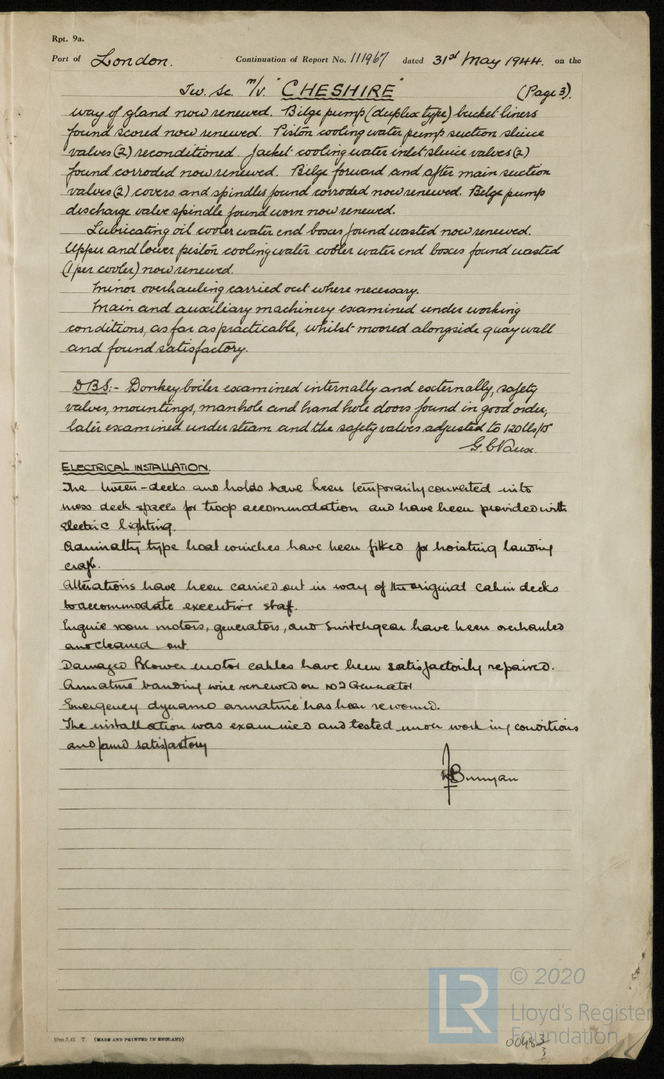 Rpt. 9a.
Port of London. Continuation of Report No. 111967 dated 31st May 1944. on the
Tw. Sc. m/v. "CHESHIRE" (Page 3).
way of gland now renewed. Bilge pump (duplex type) bucket liners
found scored now renewed. Piston cooling water pump suction sluice
valves (2) reconditioned. Jacket cooling water inlet sluice valves (2)
found corroded now renewed. Bilge forward and after main suction
valves (2) covers and spindles found corroded now renewed. Bilge pump
discharge valve spindle found worn now renewed.
Lubricating oil cooler water end boxes found wasted now renewed.
Upper and lower piston cooling water cooler water end boxes found wasted
(1 per cooler) now renewed.
Minor overhauling carried out where necessary.
Main and auxiliary machinery examined under working
conditions, as far as practicable, whilst moored alongside quay wall
and found satisfactory.
DBS:- Donkey boiler examined internally and externally, safety
valves, mountings, manhole and hand hole doors found in good order,
later examined under steam and the safety valves adjusted to 120 lbs/□"
ELECTRICAL INSTALLATION.
The tween-decks and holds have been temporarily converted into
mess deck spaces for troop accommodation and have been provided with
electric lighting.
Admiralty type boat winches have been fitted for hoisting landing
craft.
Alterations have been carried out in way of the original cabin decks
to accommodate executive staff.
Engine room motors, generators, and switchgear have been overhauled
and cleaned out
Damaged Blower motor cables have been satisfactorily repaired.
Armature banding wire renewed on No 2 Generator
Emergency dynamo armature has been rewound.
The installation was examined and tested under working conditions
and found satisfactory
Bunyan
(MADE AND PRINTED IN ENGLAND)
LR © 2020
Lloyd's Register
Foundation